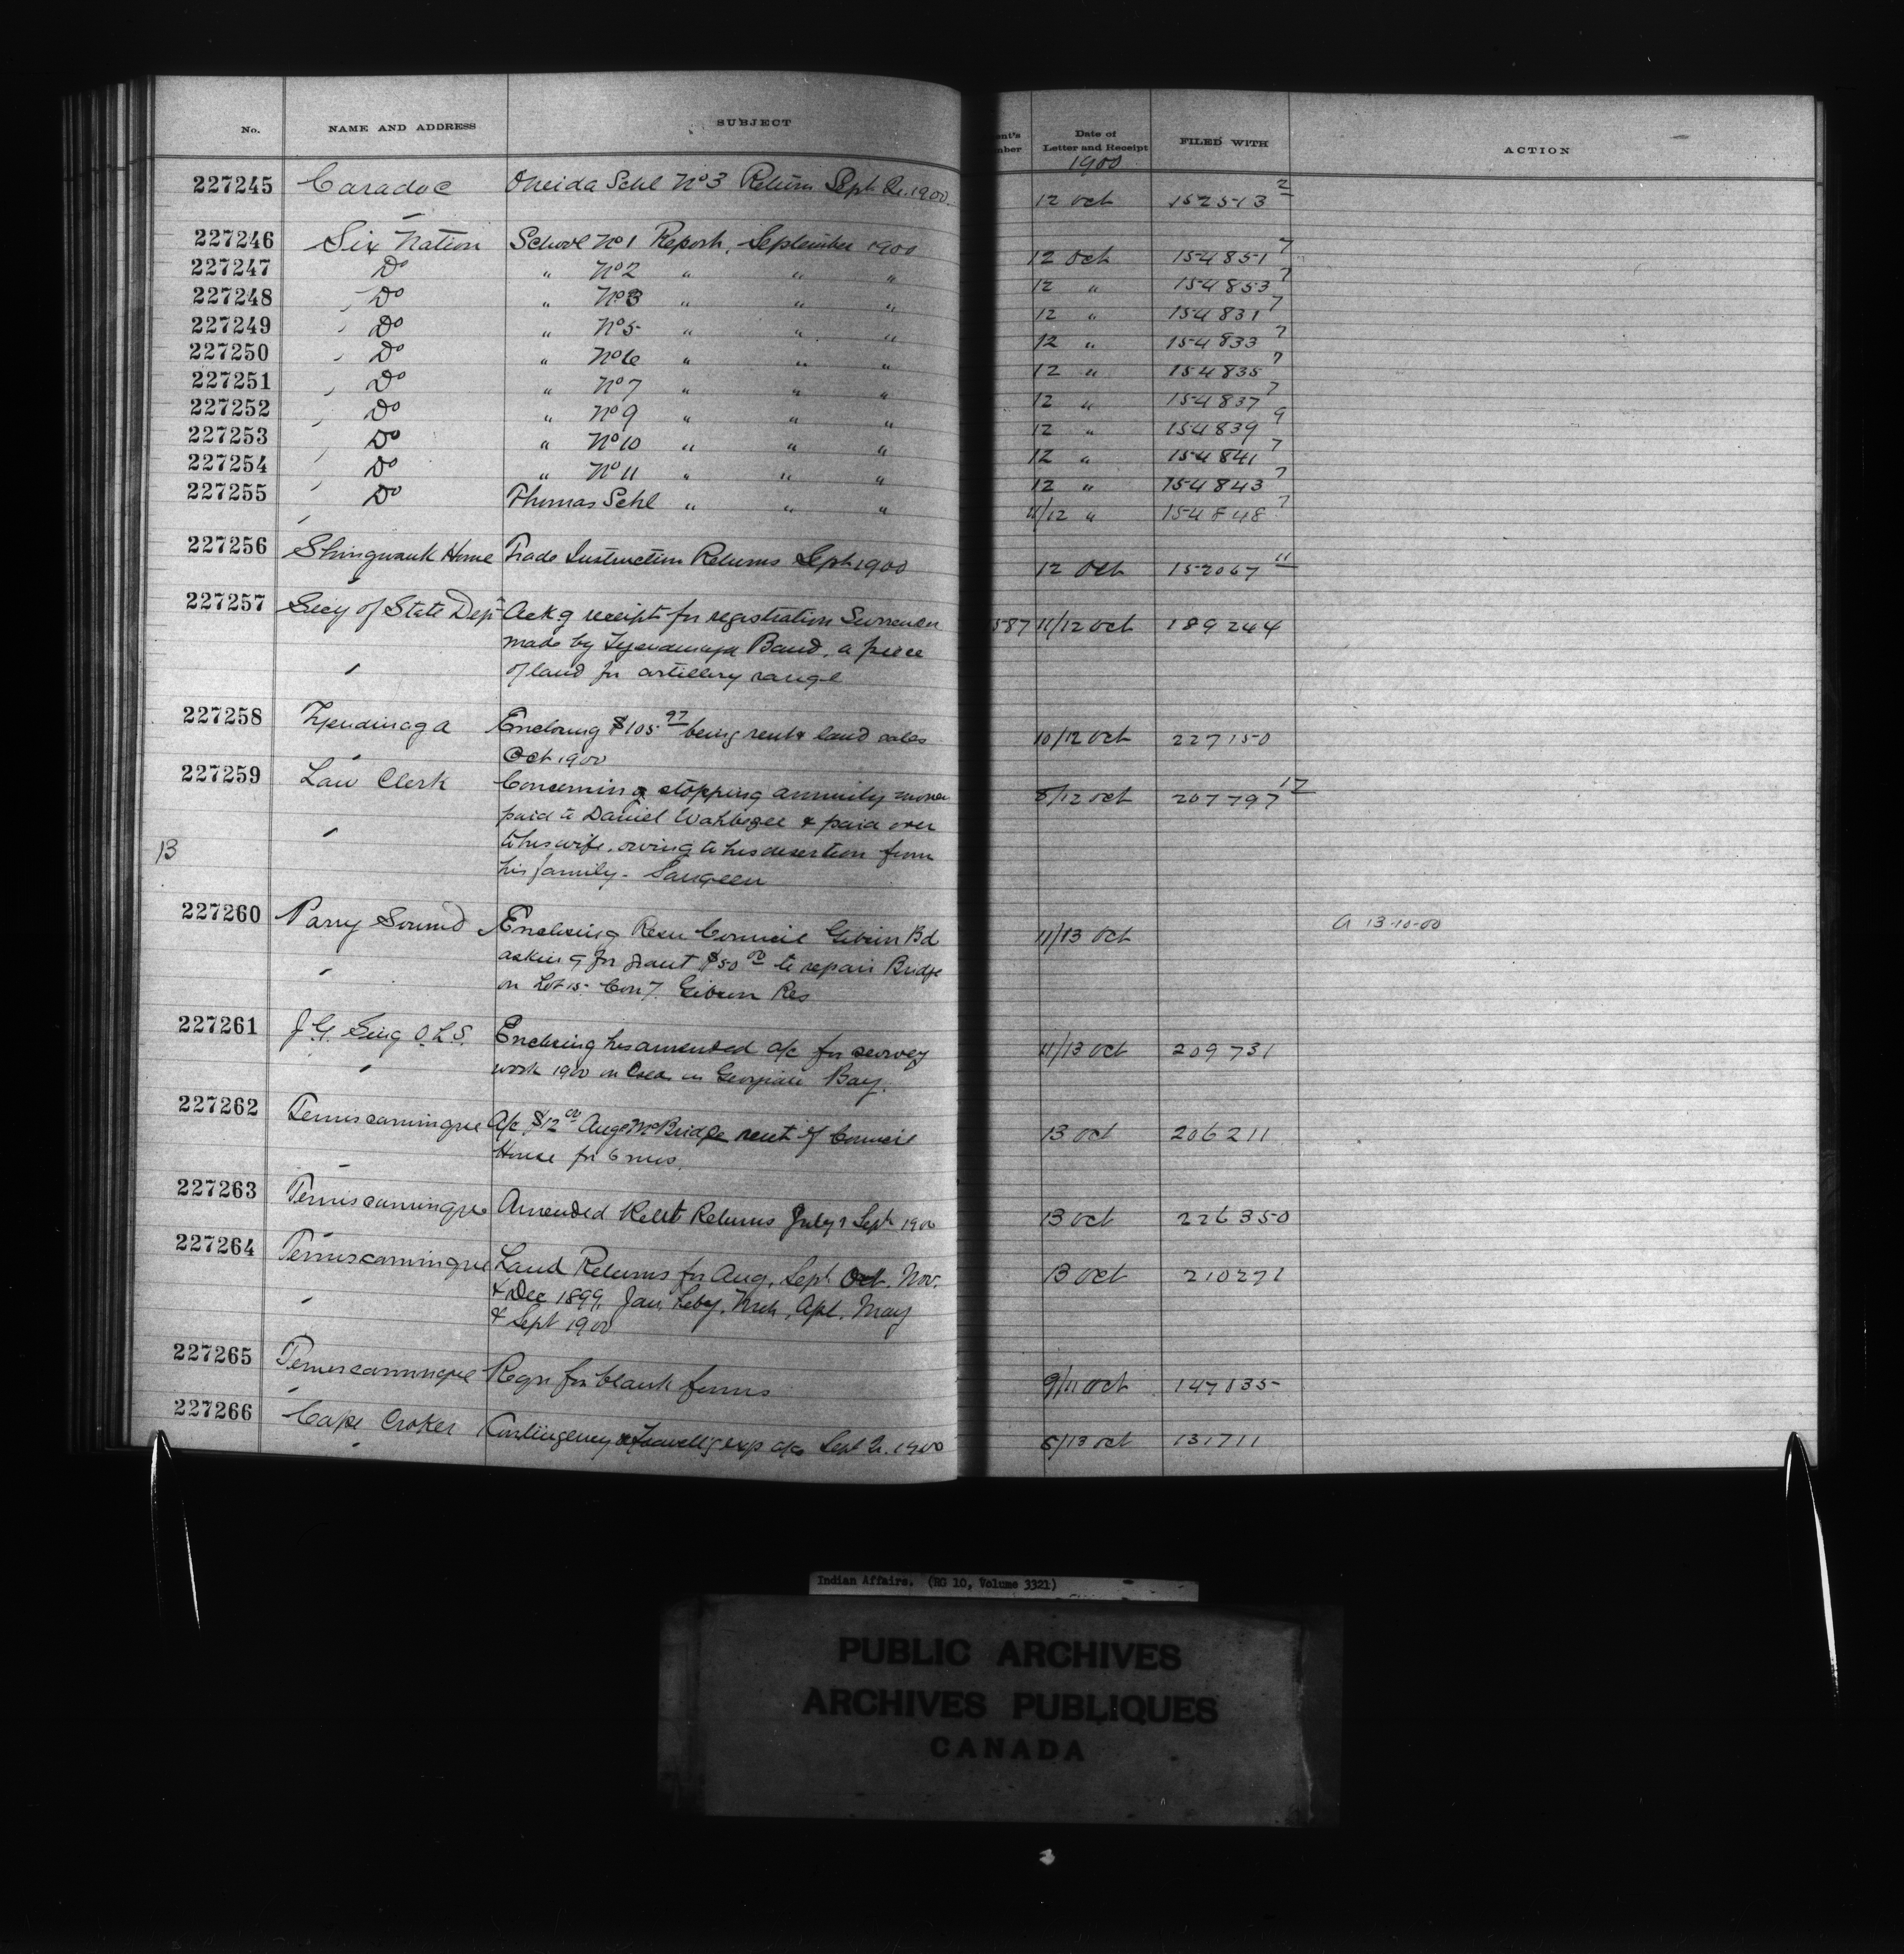 No. NAME AND ADDRESS SUBJECT Date of Letter and Receipt FILED WITH ACTION
1900
227245 Caradoc Oneida Schl No 3 Return Sept Qr. 1900 12 Oct 152513 2
227246 Six Nation School No 1 Report, September 1900 12 Oct 154851 7
227247 Do " No 2 " " " 12 " 154853 7
227248 Do " No 3 " " " 12 " 154831 7
227249 Do " No 5 " " " 12 " 154833 7
227250 Do " No 6 " " " 12 " 154835 7
227251 Do " No 7 " " " 12 " 154837 7
227252 Do " No 9 " " " 12 " 154839 9
227253 Do " No 10 " " " 12 " 154841 7
227254 Do " No 11 " " " 12 " 154843 7
227255 Do Thomas Schl " " " 11/12 " 154848 7
227256 Shingwauk Home Trade Instruction Returns Sept 1900 12 Oct 152067 11
227257 Secy of State Dept Ackg receipt for registration Surrender 587 11/12 Oct 189244
made by Tyendinaga Band, a piece
of land for artillery range
227258 Tyendinaga Enclosing $105 97 being rent & land sales 10/12 Oct 227150
Oct 1900
227259 Law Clerk Concerning stopping annuity money 8/12 Oct 207797 17
paid to Daniel Wahbezee & paid over
B to his wife, owing to his desertion from
his family - Saugeen
227260 Parry Sound Enclosing Resn Council Gibson Bd 11/13 Oct a 13-10-00
asking for grant $50 00 to repair Bridge
on Lot 15 Con 7. Gibson Res
227261 J. G. Sing O.L.S. Enclosing his amended a/c for survey 11/13 Oct 209731
work 1900 on in Georgian Bay.
227262 Temiscamingue A/c $12 00 Ang. McBride rent of Council 13 Oct 206211
House for 6 mos.
227263 Temiscamingue Amended Relief Returns July & Sept 1900 13 Oct 226350
227264 Temiscamingue Land Returns for Aug, Sept Oct. Nov. 13 Oct 210271
& Dec 1899, Jan, Feby, Mch, Apl. May
& Sept 1900
227265 Temiscamingue Reqn for blank forms 9/11 Oct 147135
227266 Cape Croker Contingency & Travellg exp a/cs Sept Qr. 1900 8/13 Oct 131711
Indian Affairs. (RG 10, Volume 3321)
PUBLIC ARCHIVES
ARCHIVES PUBLIQUES
CANADA